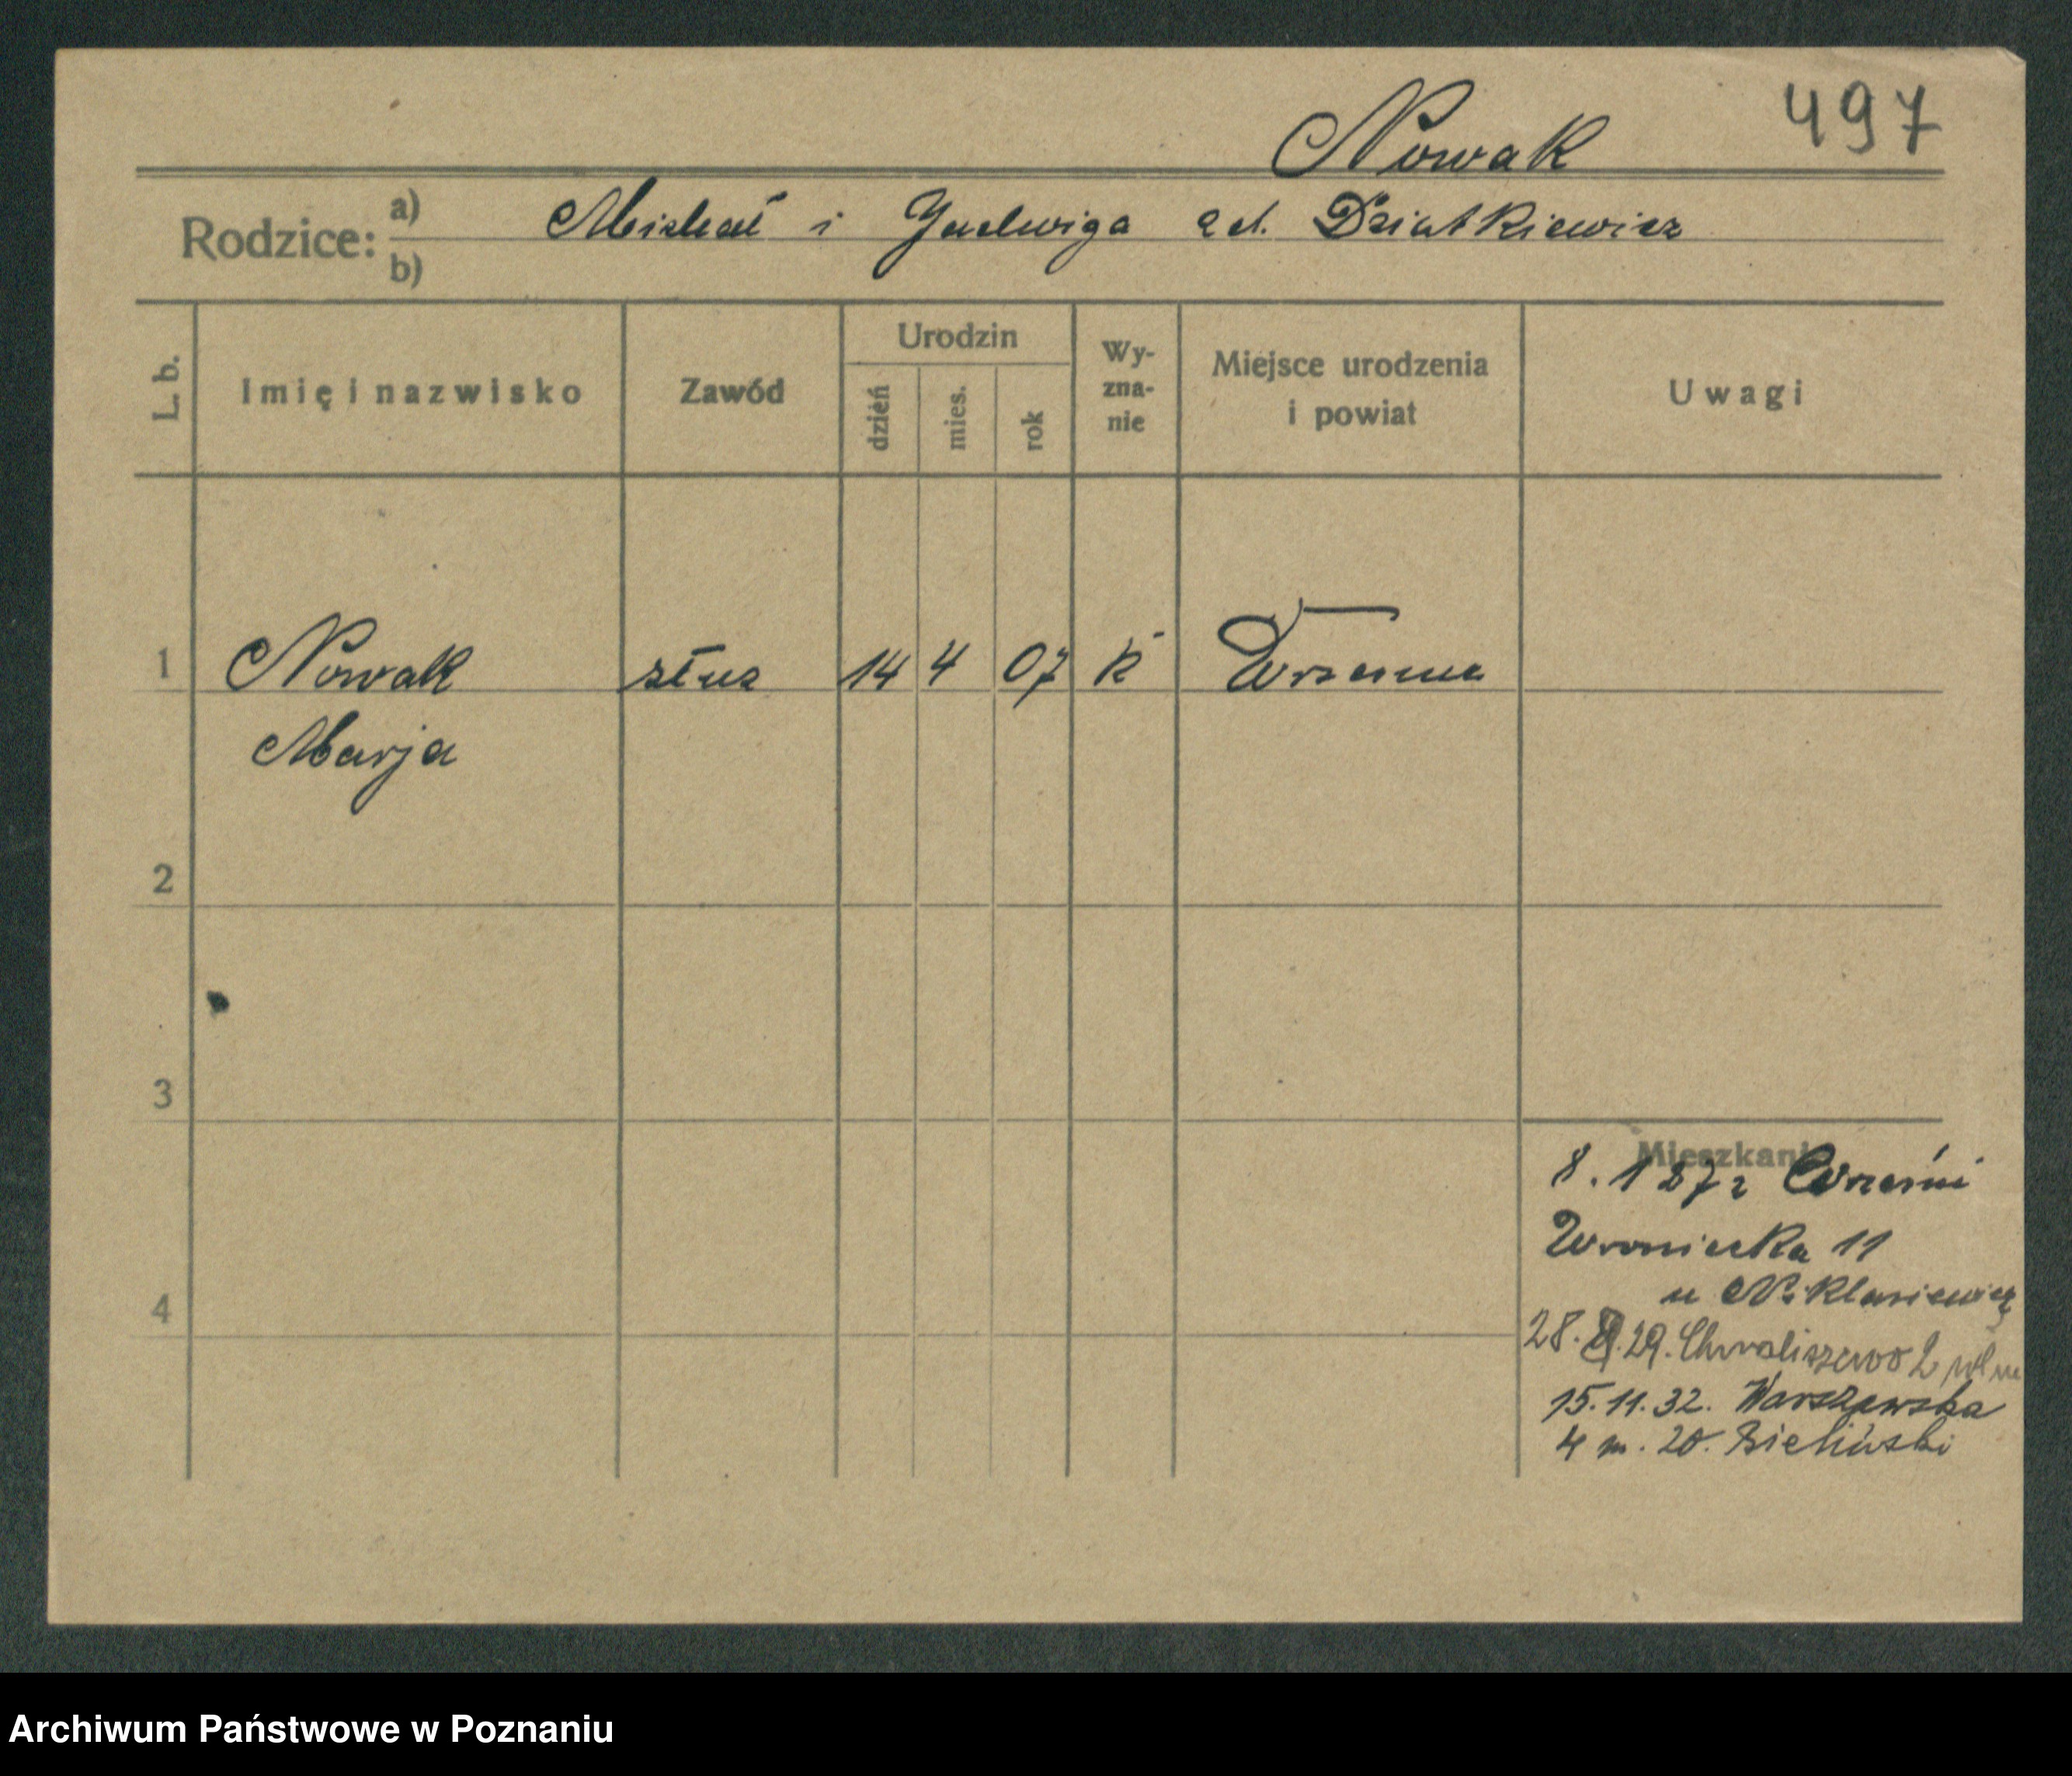 497
Nowak
Rodzice: a) Michał i Jadwiga zd. Dziatkiewicz
b)
L. b. Imię i nazwisko Zawód Urodzin dzień mies. rok Wy-zna-nie Miejsce urodzenia i powiat Uwagi
1 Nowak służ 14 4 07 k Września
Marja
2
3
Mieszkani
8.1 27 z Wrześni
4
Wroniecka 11
u
28. 29. Chwaliszewo 2
15.11.32. Warszawska
4 m. 20. Bieliński
Archiwum Państwowe w Poznaniu